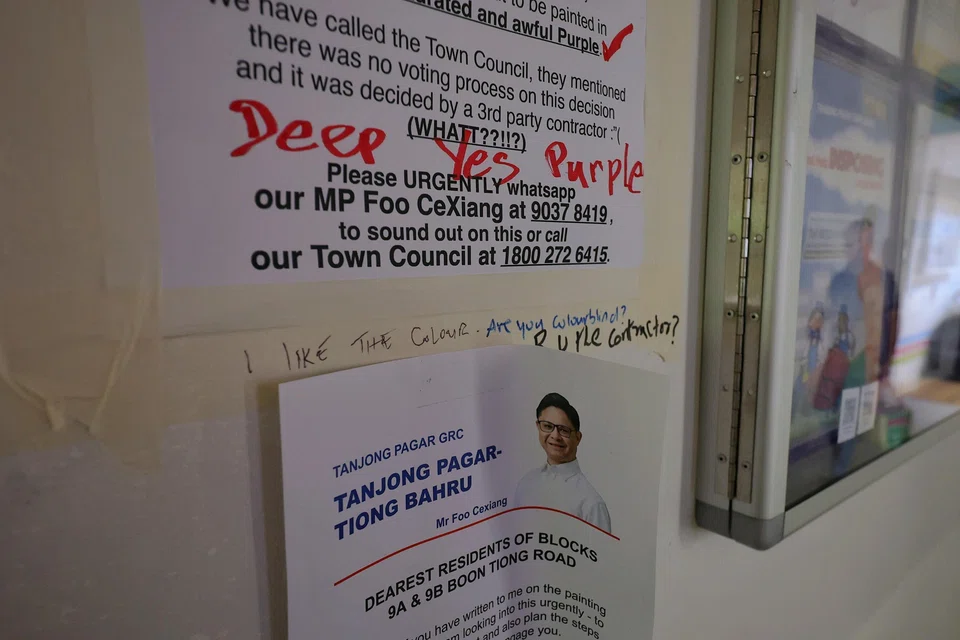 to be painted in
urated and awful Purple.
We have called the Town Council, they mentioned
there was no voting process on this decision
and it was decided by a 3rd party contractor :"(
(WHATT??!!?)
Deep Yes Purple
Please URGENTLY whatsapp
our MP Foo CeXiang at 9037 8419,
to sound out on this or call
our Town Council at 1800 272 6415.
I LIKE THE COLOUR. Are you colourblind?
R U the contractor?
TANJONG PAGAR GRC
TANJONG PAGAR-
TIONG BAHRU
Mr Foo Cexiang
DEAREST RESIDENTS OF BLOCKS
9A & 9B BOON TIONG ROAD
you have written to me on the painting
am looking into this urgently - to
t and also plan the steps
gage you.